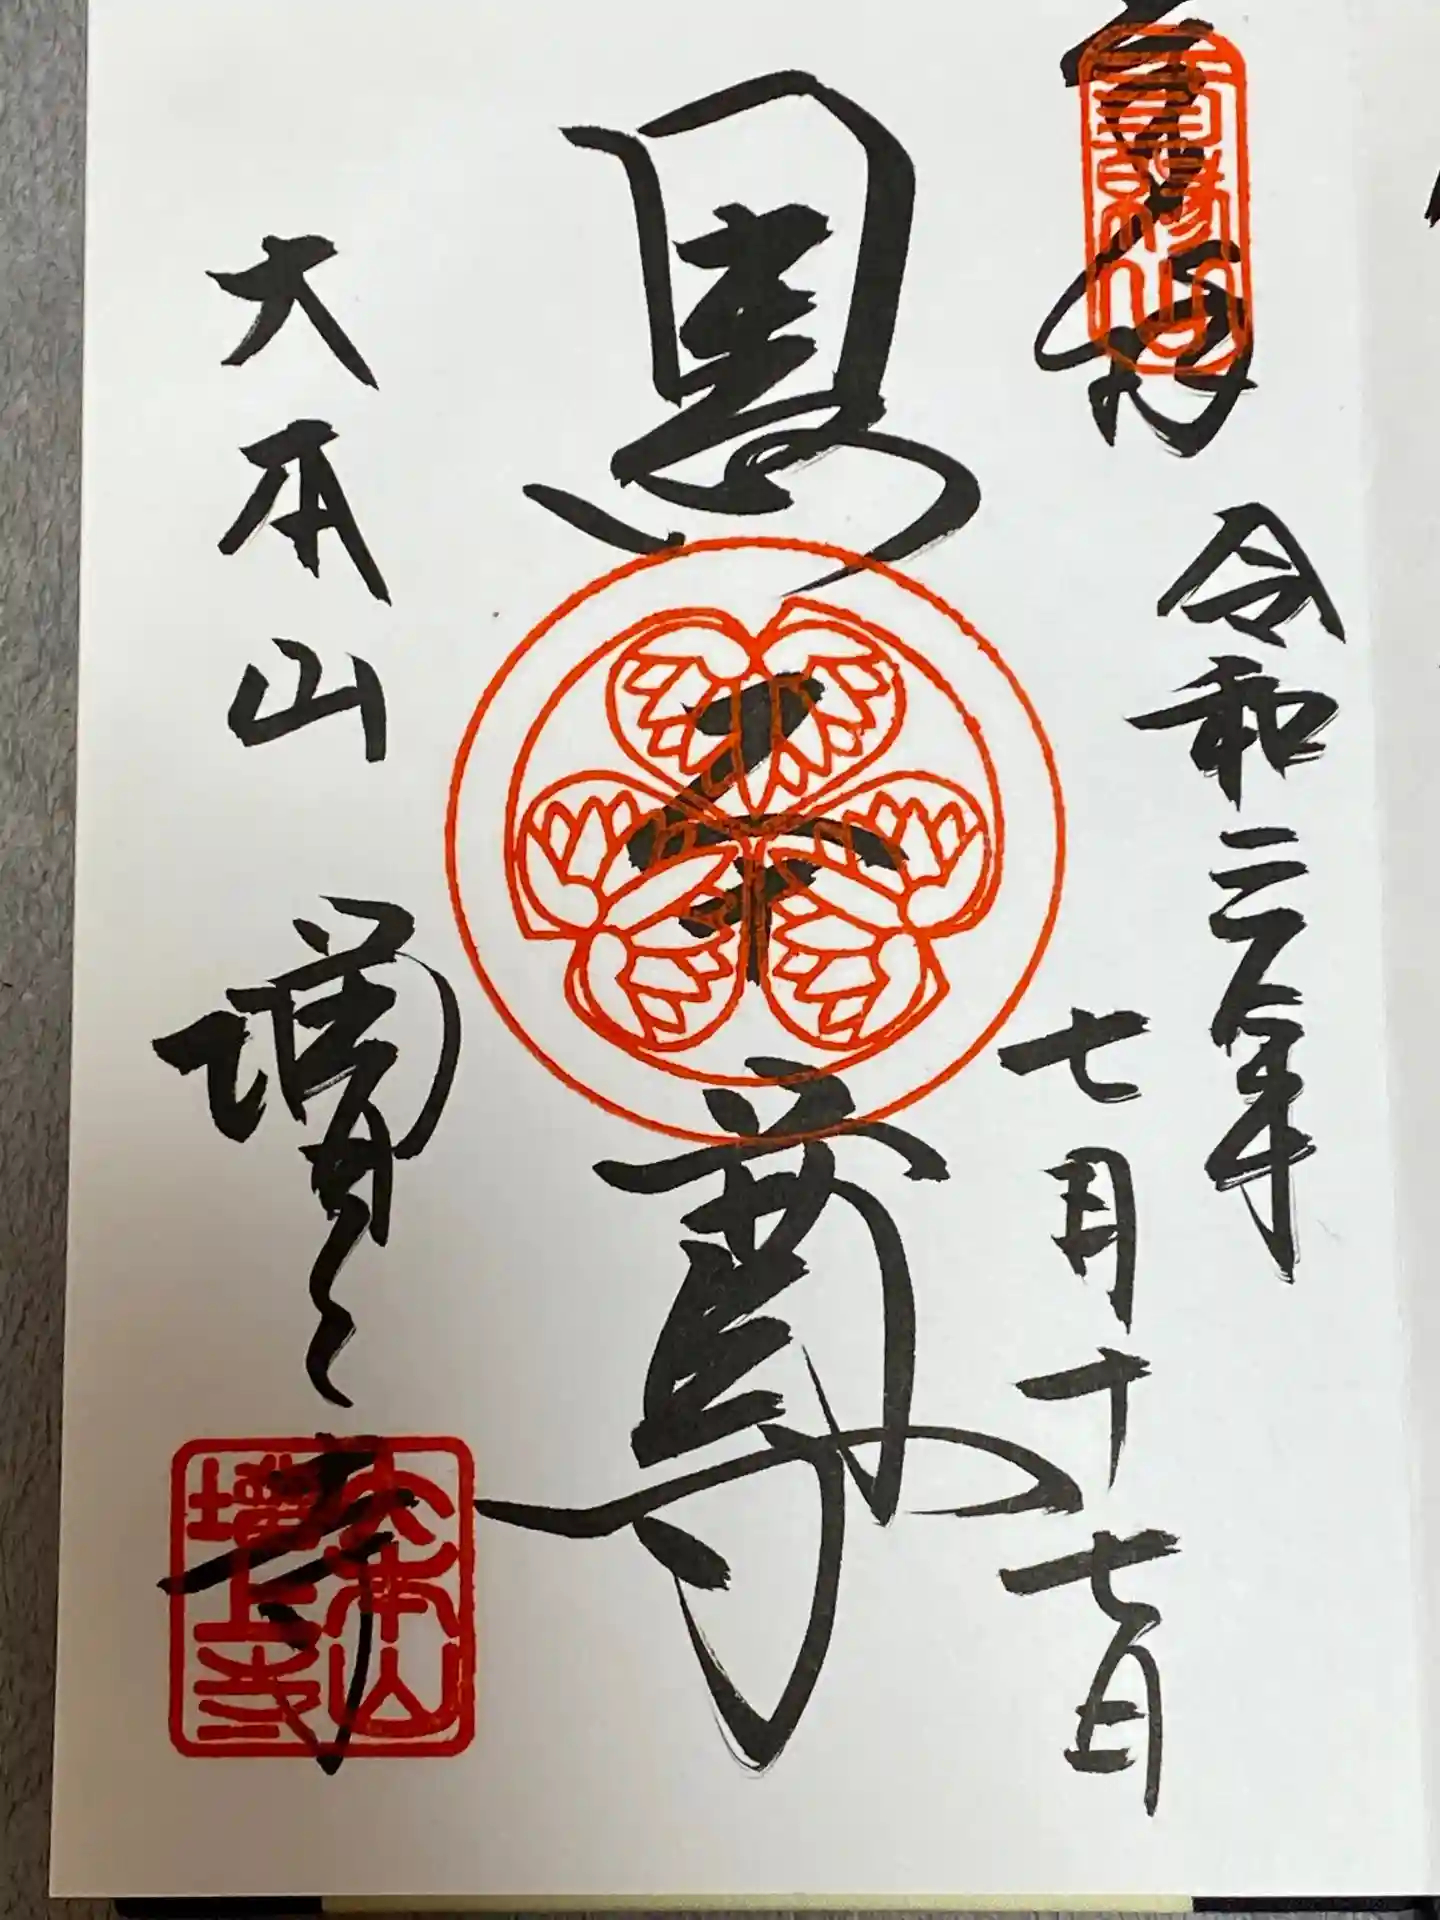 奉拝
三縁山
令和二年
七月十七日
黒本尊
大本山
増上寺
大本山
増上寺